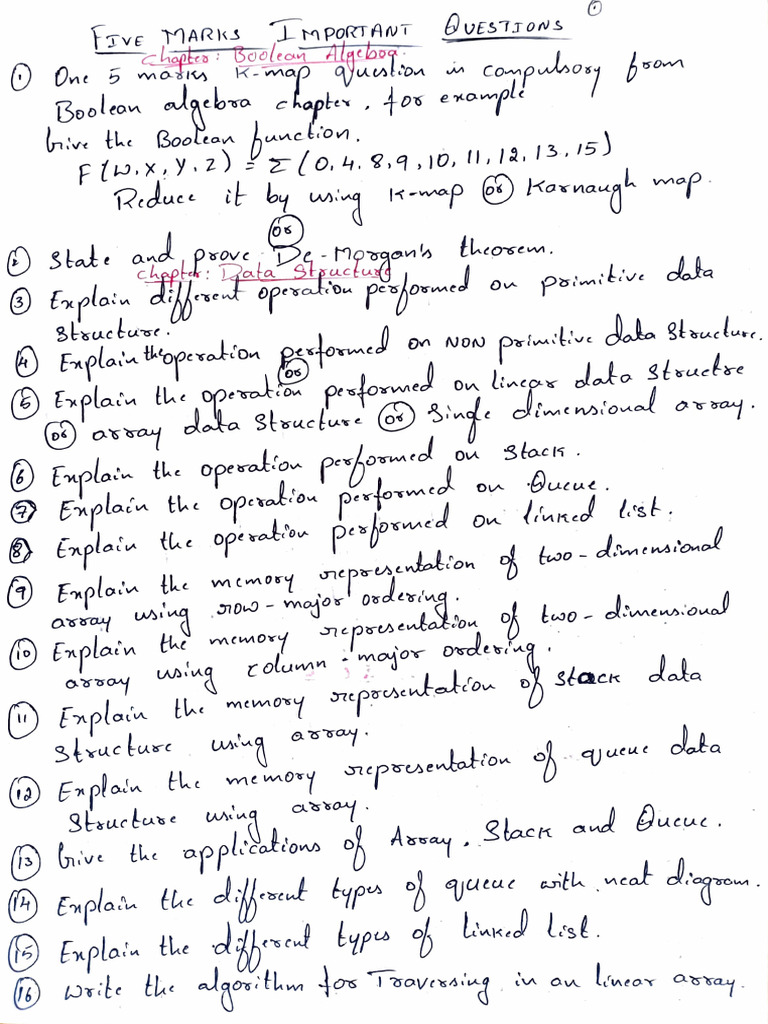 ①
FIVE MARKS IMPORTANT QUESTIONS
Chapter: Boolean Algebra.
① One 5 marks K-map question is compulsory from
Boolean algebra chapter. for example
Give the Boolean function.
F(W,X,Y,Z) = Σ(0,4,8,9,10,11,12,13,15)
Reduce it by using K-map or Karnaugh map.
or
② State and prove De-Morgan's theorem.
Chapter: Data Structure
③ Explain different operation performed on primitive data
structure.
④ Explain the operation performed on NON primitive data structure.
or
⑤ Explain the operation performed on linear data structre
or array data structure or single dimensional array.
⑥ Explain the operation performed on stack.
⑦ Explain the operation performed on Queue.
⑧ Explain the operation performed on linked list.
⑨ Explain the memory representation of two-dimensional
array using row-major ordering.
⑩ Explain the memory representation of two-dimensional
array using column-major ordering.
⑪ Explain the memory representation of stack data
structure using array.
⑫ Explain the memory representation of queue data
structure using array.
⑬ Give the applications of Array, Stack and Queue.
⑭ Explain the different types of queue with neat diagram.
⑮ Explain the different types of linked list.
⑯ Write the algorithm for Traversing in an linear array.